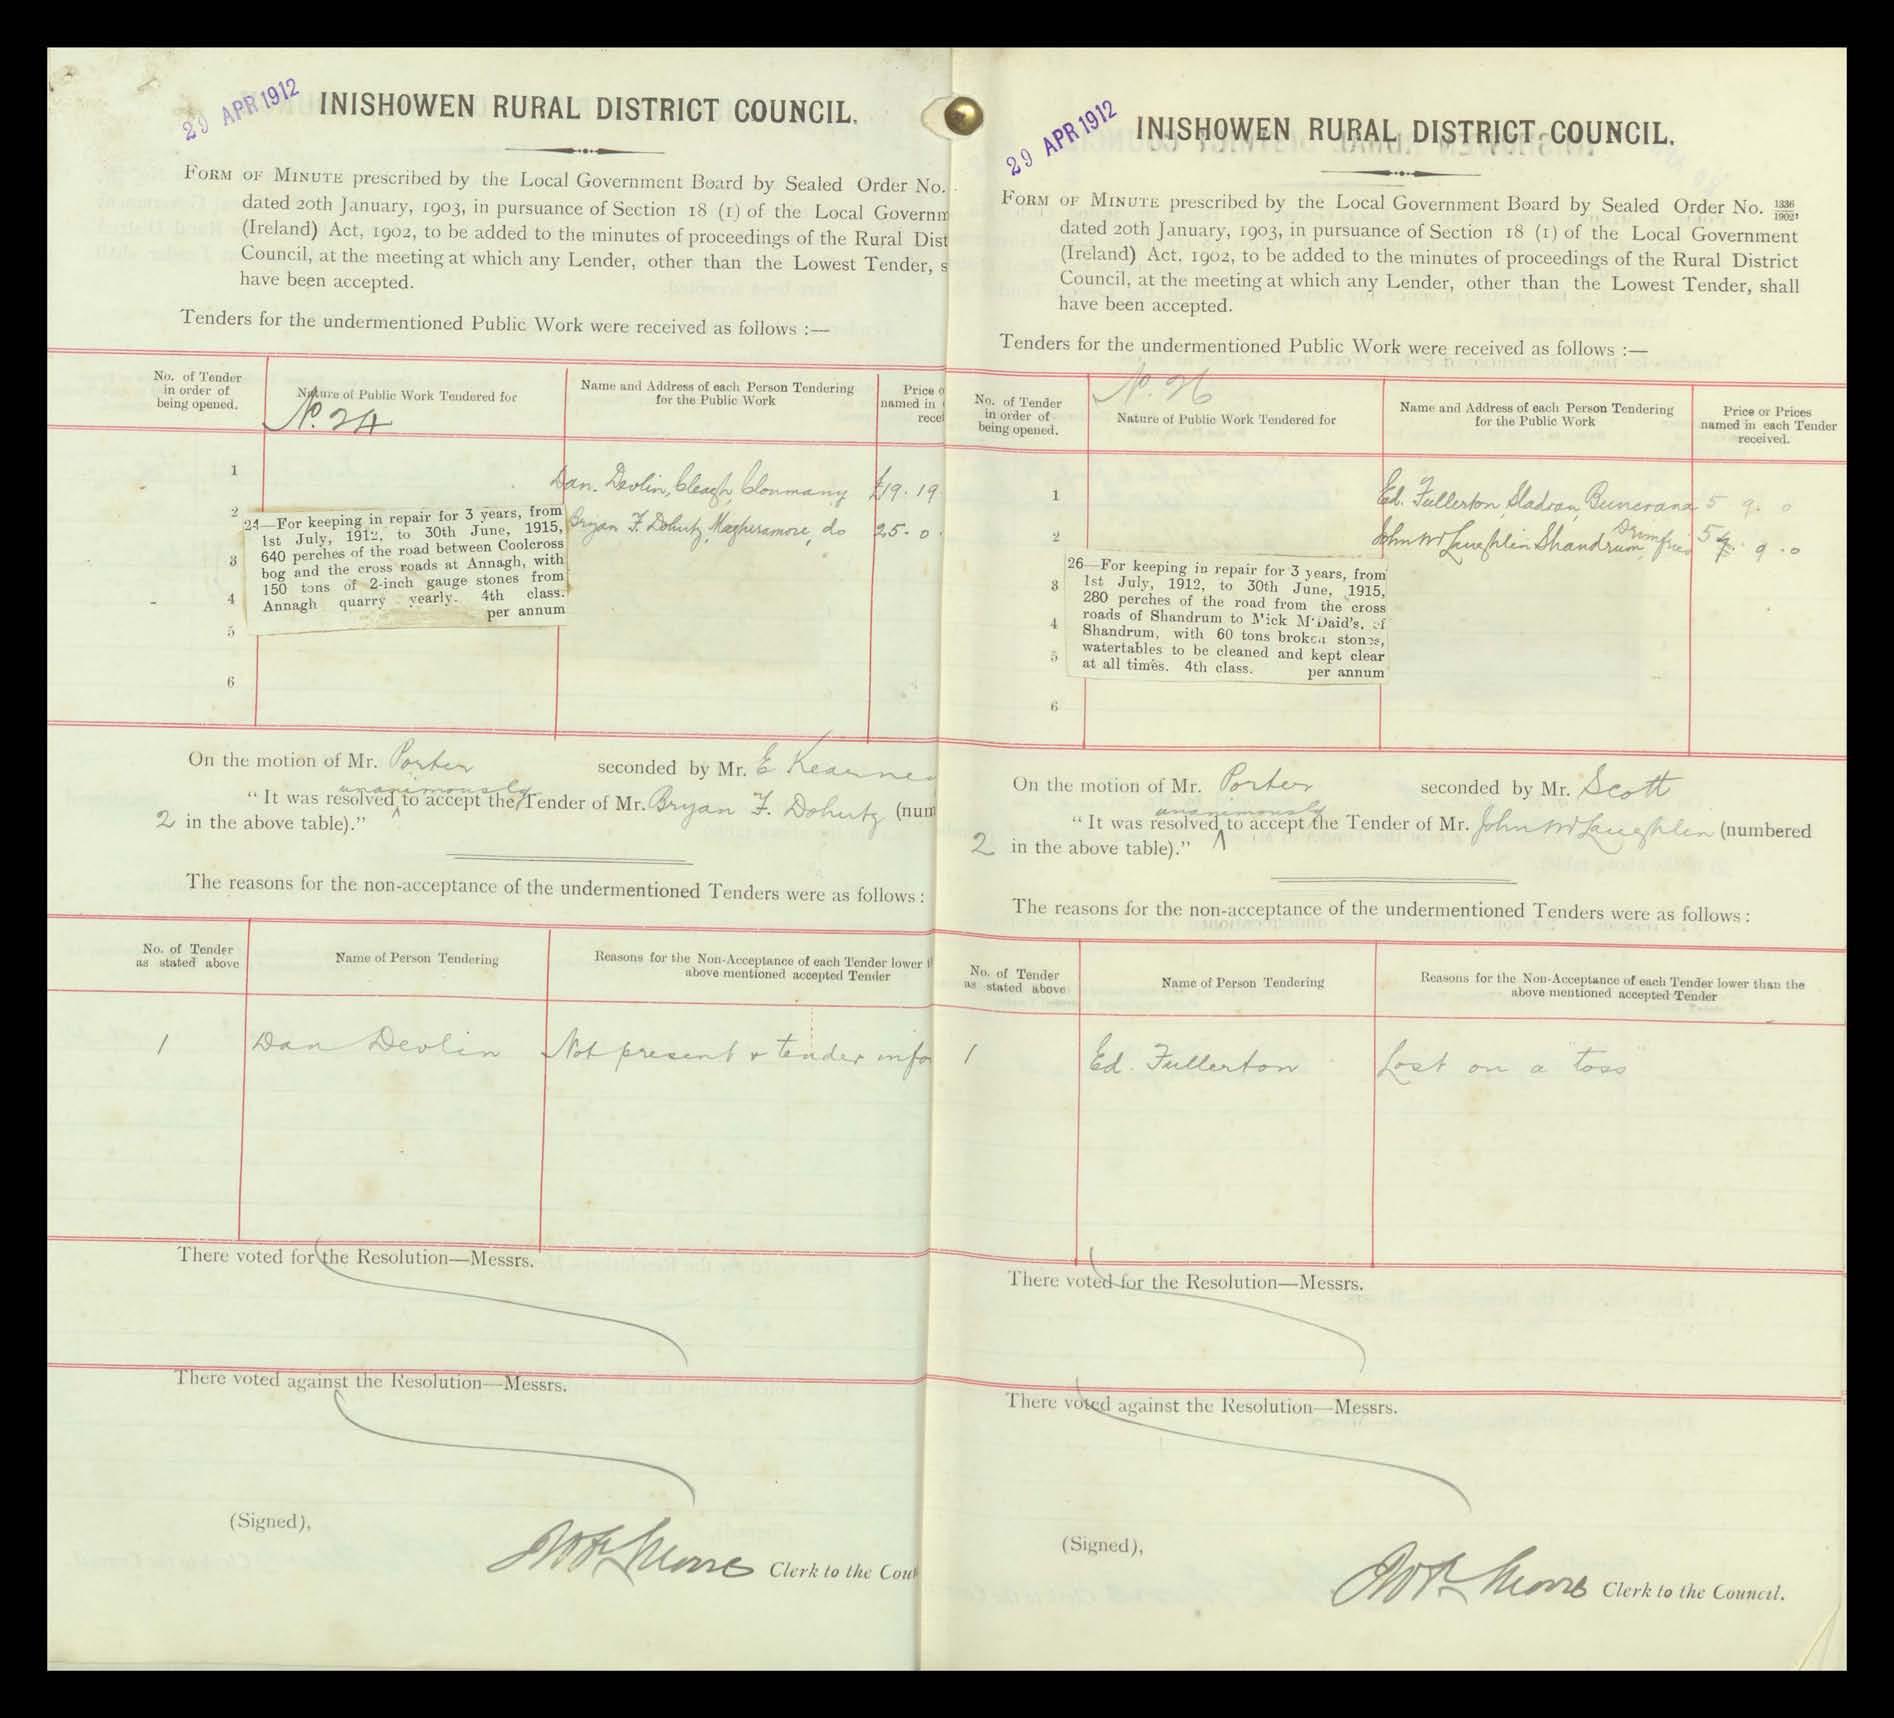 29 APR 1912
INISHOWEN RURAL DISTRICT COUNCIL.
FORM OF MINUTE prescribed by the Local Government Board by Sealed Order No.
dated 20th January, 1903, in pursuance of Section 18 (1) of the Local Governm
(Ireland) Act, 1902, to be added to the minutes of proceedings of the Rural Dist
Council, at the meeting at which any Lender, other than the Lowest Tender, s
have been accepted.
Tenders for the undermentioned Public Work were received as follows :—
No. of Tender in order of being opened.
Nature of Public Work Tendered for
No. 24
Name and Address of each Person Tendering for the Public Work
Price o
named in
recei
1
Dan. Devlin, Cleagh, Clonmany £19. 19
2
Bryan F. Dohertz, Magheramore, do 25. 0.
24—For keeping in repair for 3 years, from
1st July, 1912, to 30th June, 1915,
640 perches of the road between Coolcross
bog and the cross roads at Annagh, with
150 tons of 2-inch gauge stones from
Annagh quarry yearly. 4th class.
per annum
3
4
5
6
On the motion of Mr. Porter seconded by Mr. E Kearne
unanimously
" It was resolved ^ to accept the Tender of Mr. Bryan F. Dohertz (num
2 in the above table)."
The reasons for the non-acceptance of the undermentioned Tenders were as follows :
No. of Tender as stated above
Name of Person Tendering
Reasons for the Non-Acceptance of each Tender lower t
above mentioned accepted Tender
1 Dan Devlin Not present & tender info
There voted for the Resolution—Messrs.
There voted against the Resolution—Messrs.
(Signed),
Clerk to the Coun
29 APR 1912
INISHOWEN RURAL DISTRICT COUNCIL.
FORM OF MINUTE prescribed by the Local Government Board by Sealed Order No. 1336/1902,
dated 20th January, 1903, in pursuance of Section 18 (1) of the Local Government
(Ireland) Act, 1902, to be added to the minutes of proceedings of the Rural District
Council, at the meeting at which any Lender, other than the Lowest Tender, shall
have been accepted.
Tenders for the undermentioned Public Work were received as follows :—
No. of Tender in order of being opened.
No. 26
Nature of Public Work Tendered for
Name and Address of each Person Tendering for the Public Work
Price or Prices named in each Tender received.
1
Ed. Fullerton, Sladran, Buncrana 5 9. 0
2
John McLaughlin Shandrum, Drumfries 5. 9. 0
26—For keeping in repair for 3 years, from
1st July, 1912, to 30th June, 1915,
280 perches of the road from the cross
roads of Shandrum to Mick M'Daid's, of
Shandrum, with 60 tons broken stones,
watertables to be cleaned and kept clear
at all times. 4th class. per annum
3
4
5
6
On the motion of Mr. Porter seconded by Mr. Scott
unanimously
" It was resolved ^ to accept the Tender of Mr. John McLaughlin (numbered
2 in the above table)."
The reasons for the non-acceptance of the undermentioned Tenders were as follows :
No. of Tender as stated above
Name of Person Tendering
Reasons for the Non-Acceptance of each Tender lower than the
above mentioned accepted Tender
1 Ed. Fullerton Lost on a "toss"
There voted for the Resolution—Messrs.
There voted against the Resolution—Messrs.
(Signed),
Clerk to the Council.